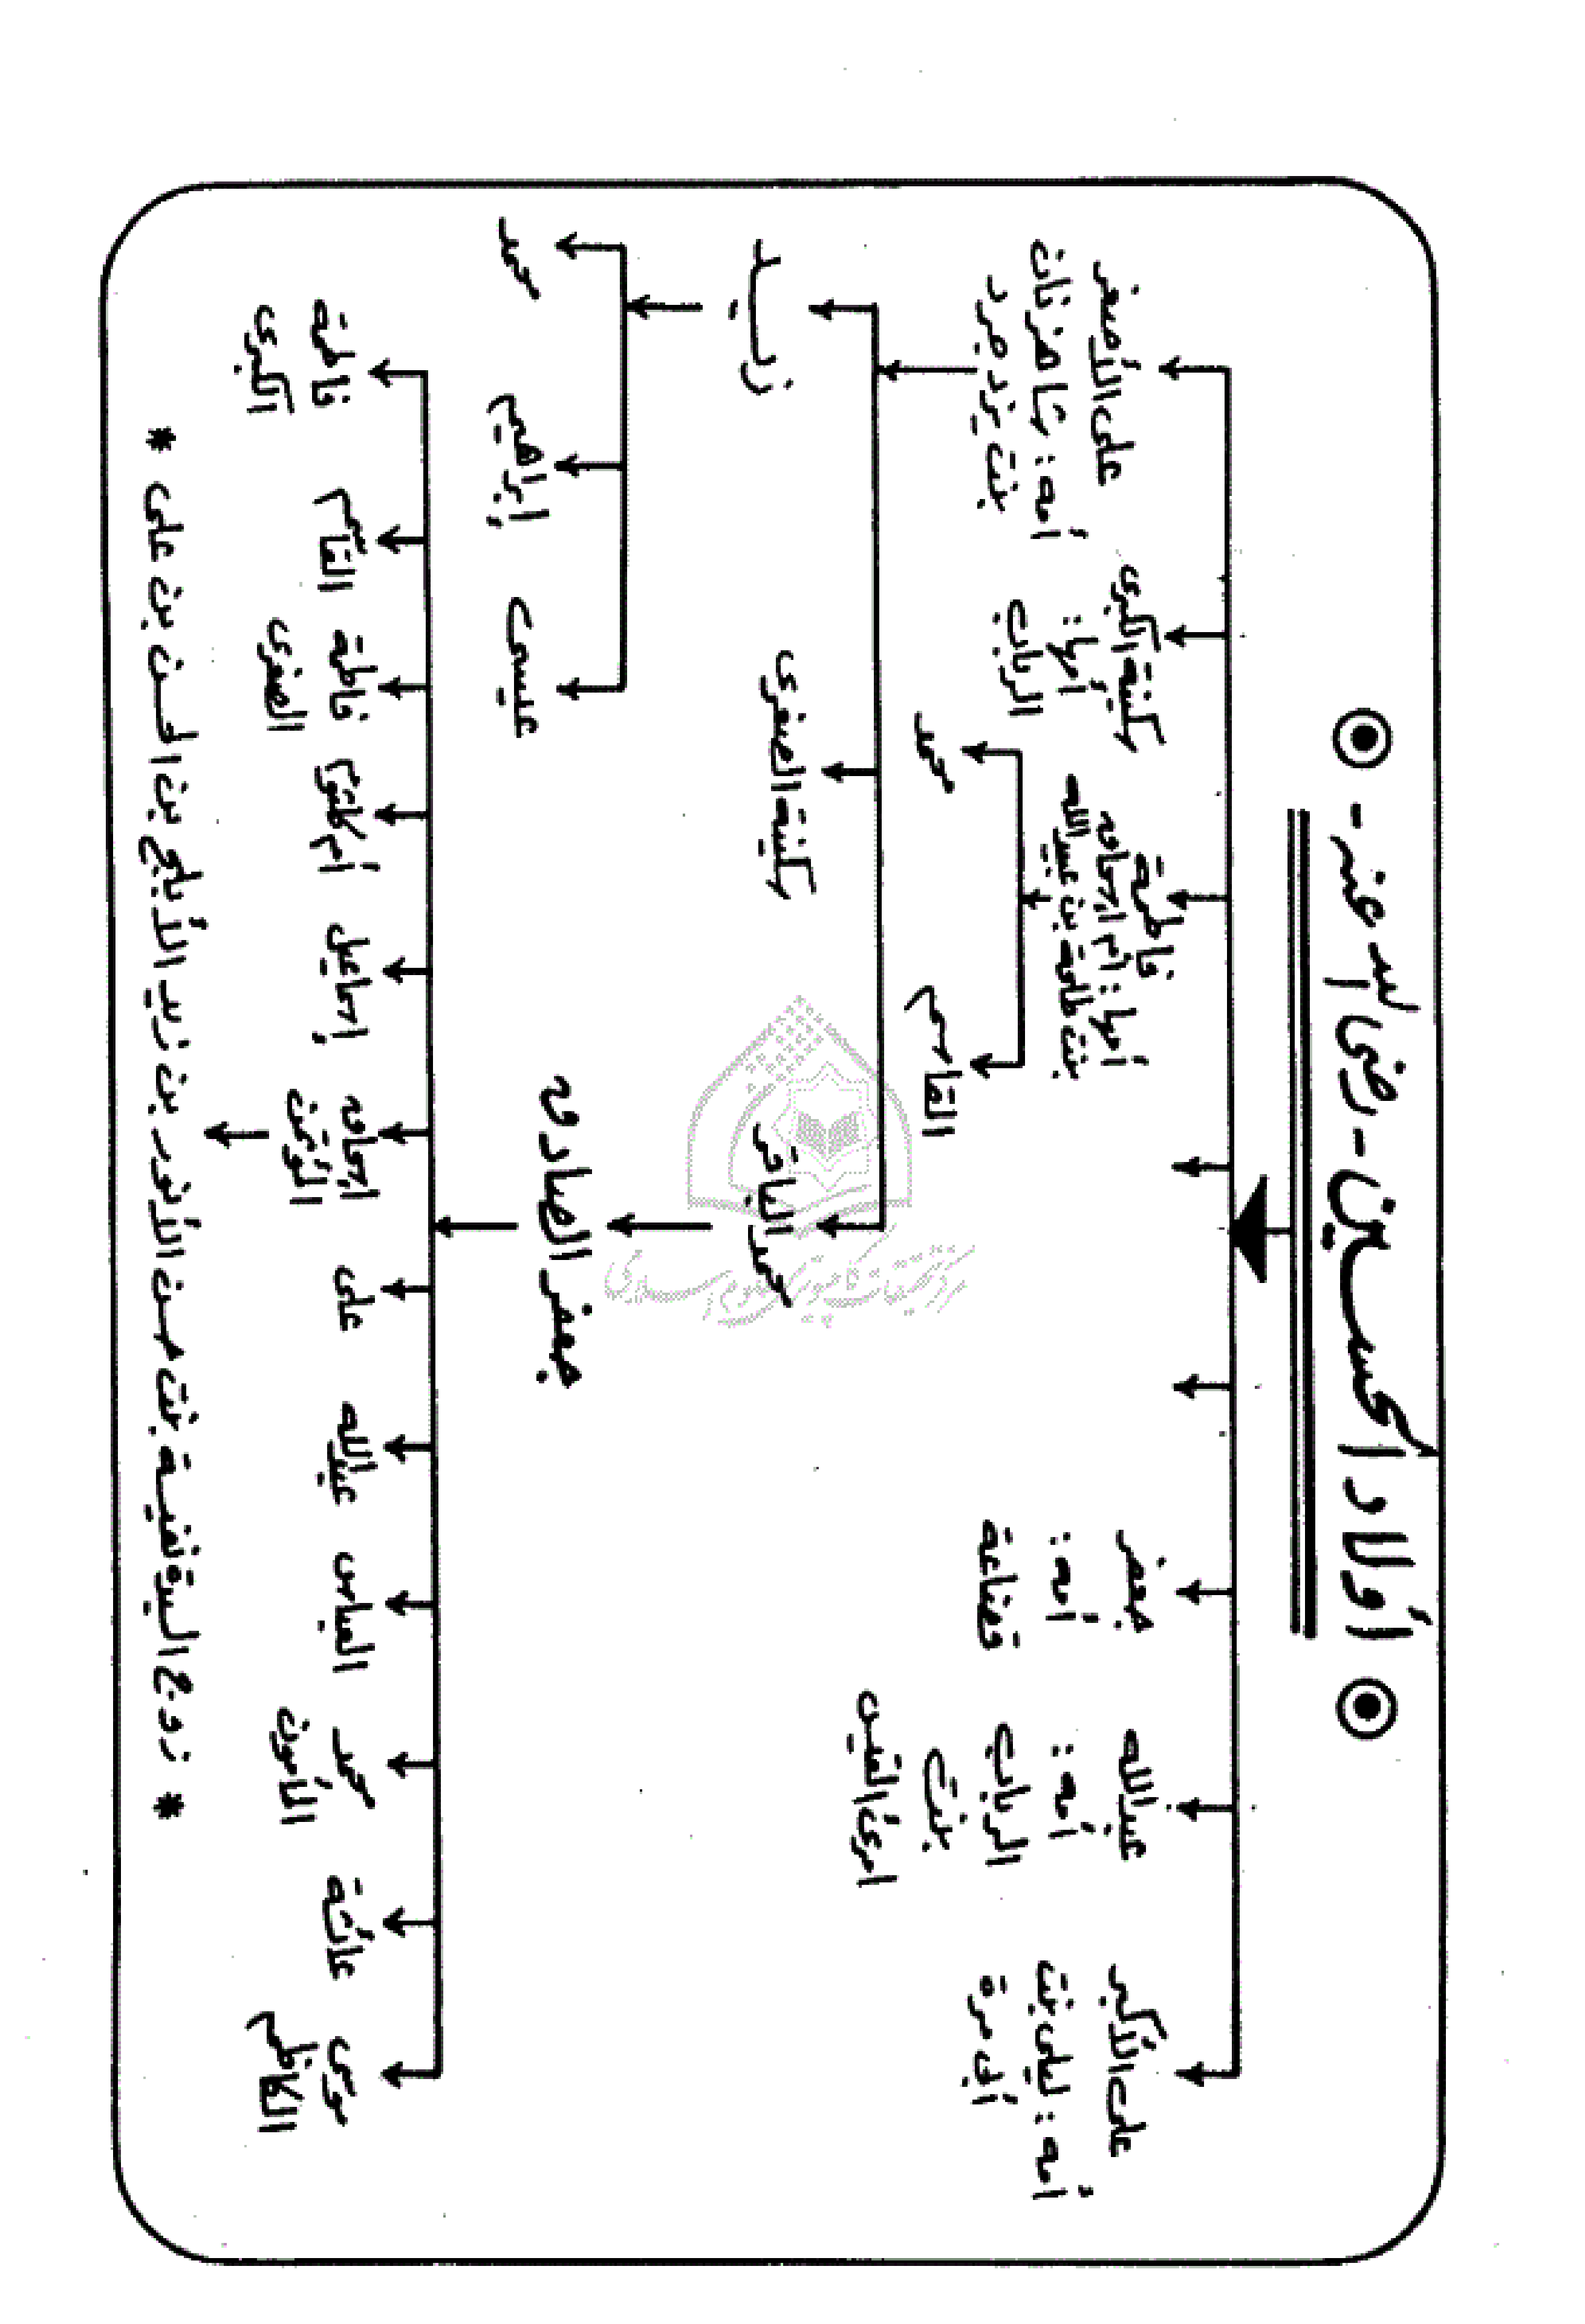 أولاد الحسين - رضى الله عنه -
على الأكبر
أمه : ليلى بنت
أبى مرة
عبد الله
أمه :
الرباب
بنت
امرئ القيس
جعفر
أمه :
قضاعة
فاطمة
أمها : أم إسحاق
بنت طلحة بن عبيد الله
القاسم
محمد
سكينة الكبرى
أمها :
الرباب
على الأصغر
أمه : شاهزنان
بنت يزدجرد
محمد الباقر
سكينة الصغرى
زيد
عيسى
إبراهيم
محمد
جعفر الصادق
موسى
الكاظم
عائشة
محمد
المأمون
العباس
عبد الله
على
إسحاق
المؤتمن
إسماعيل
أم كلثوم
فاطمة
الصغرى
القاسم
فاطمة
الكبرى
* زوج السيدة نفيسة بنت حسن الأنور بن زيد الأبلج بن الحسن بن على *